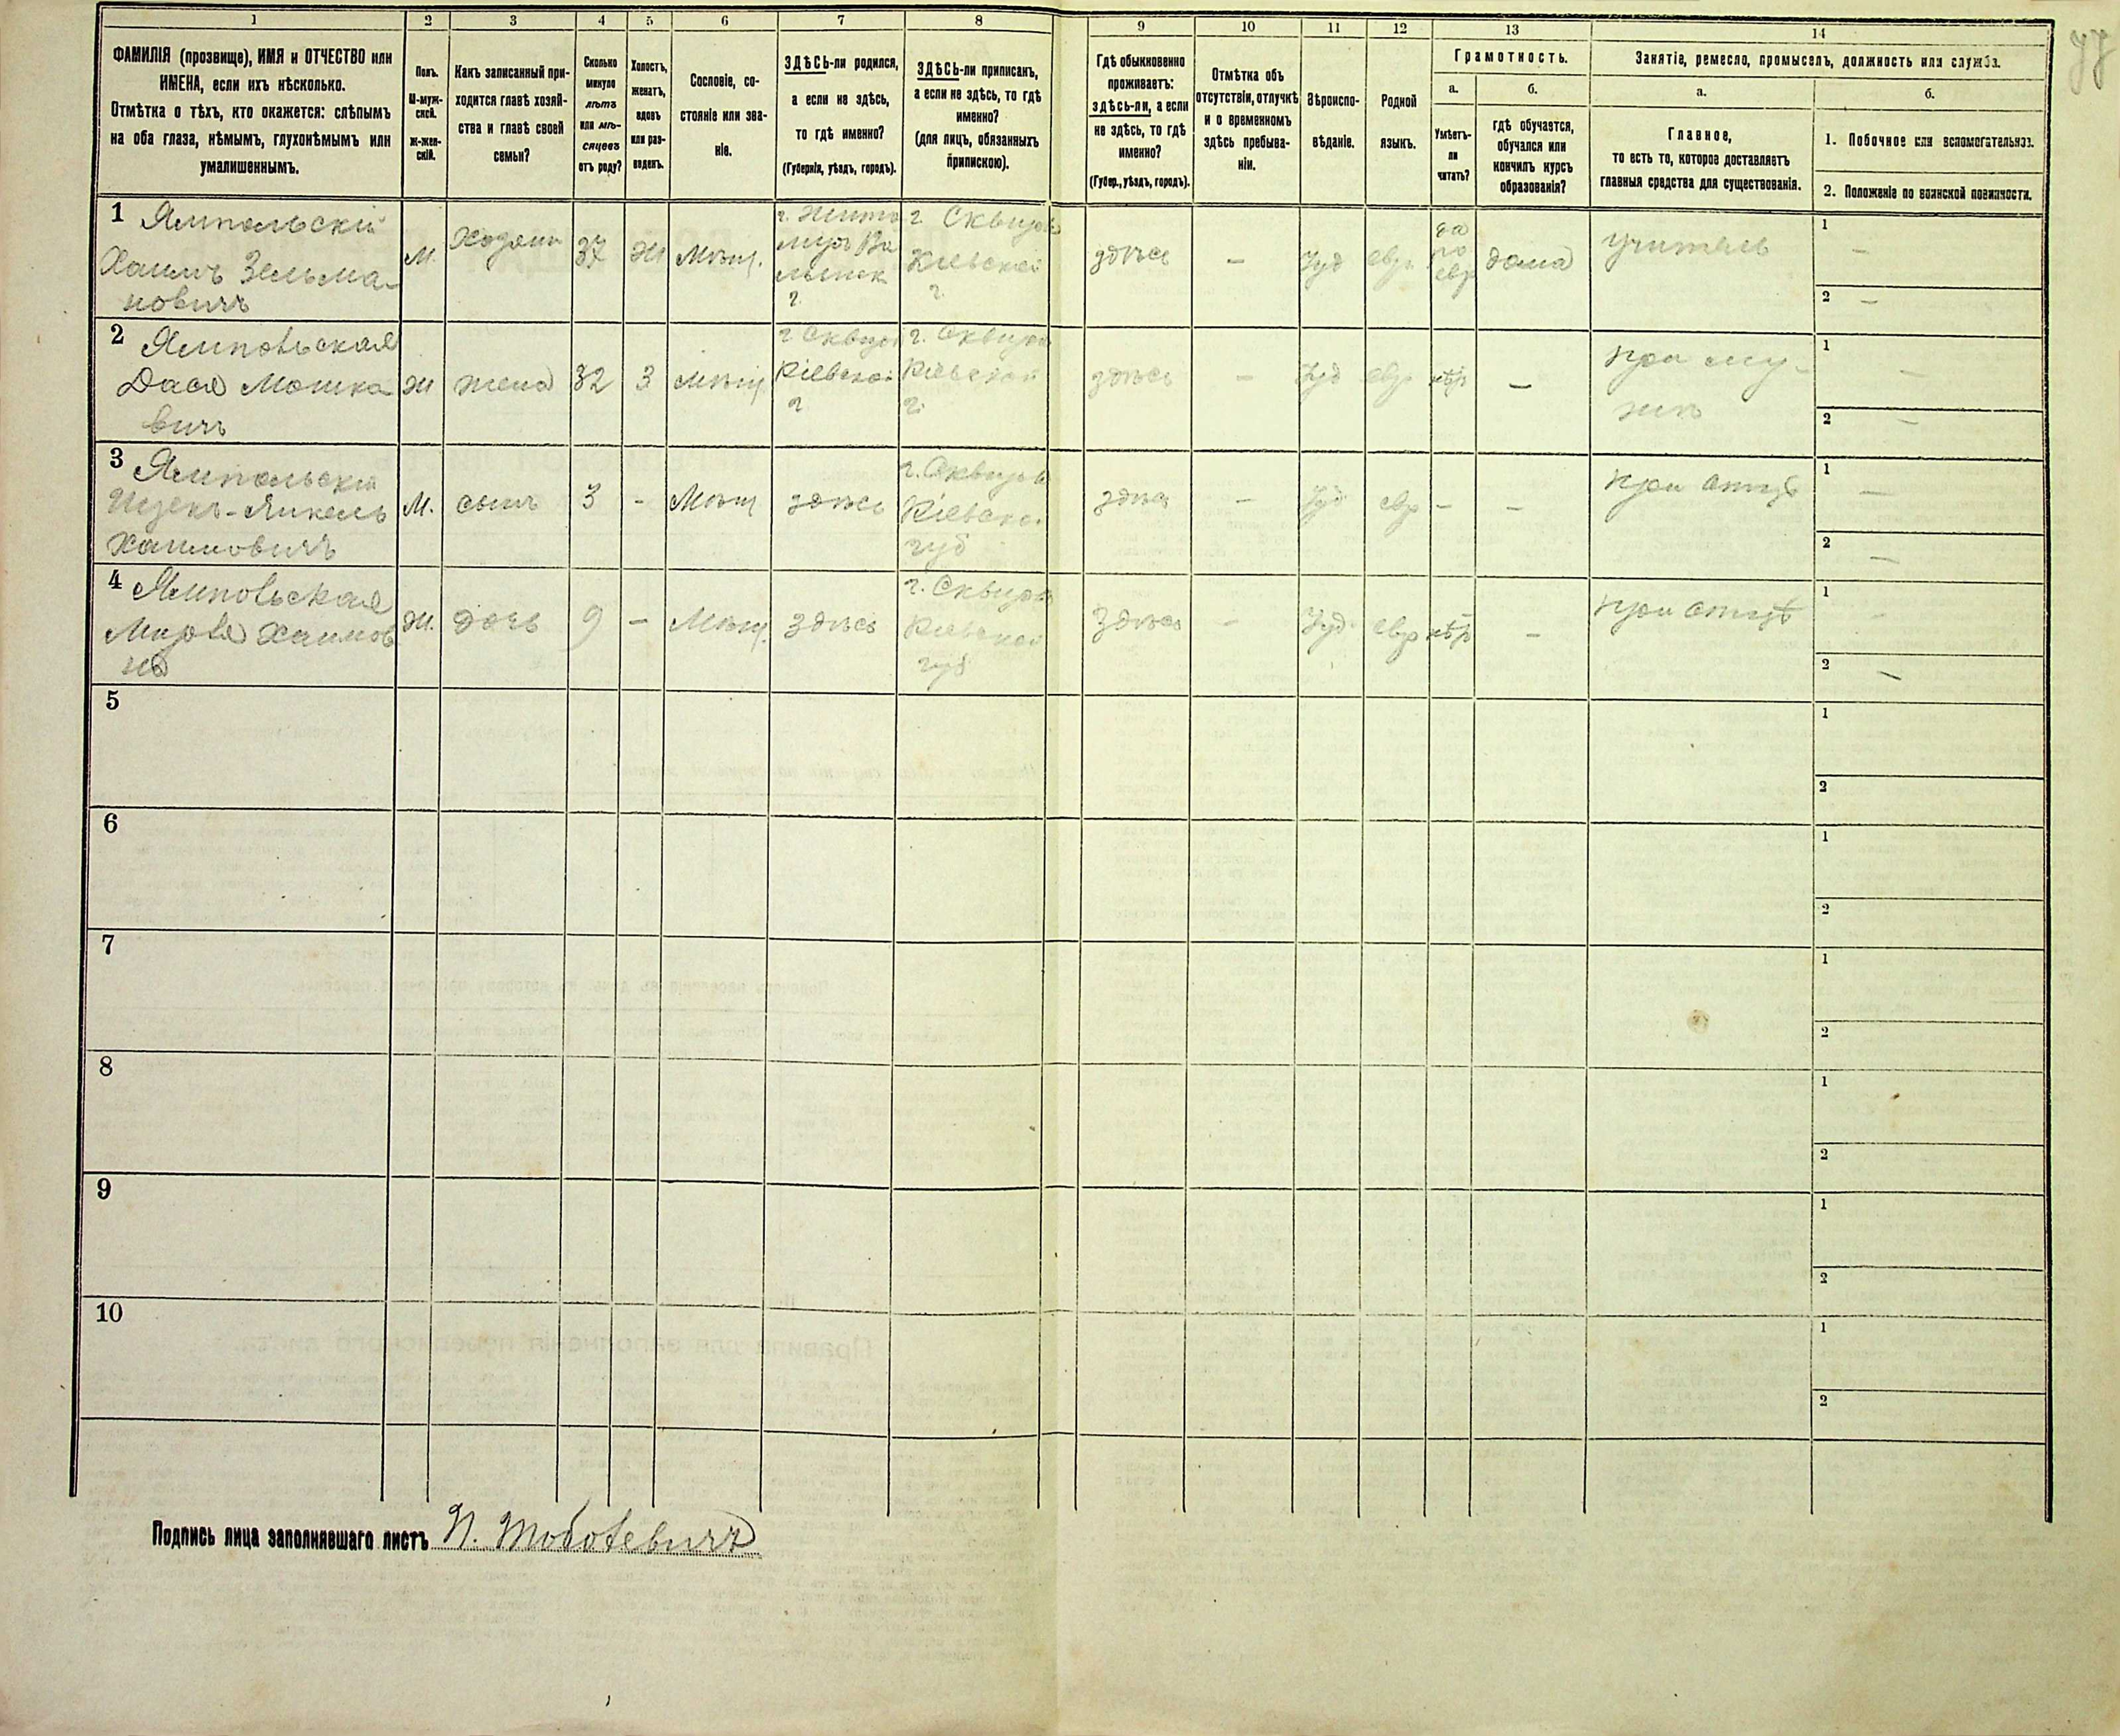 1 2 3 4 5 6 7 8 9 10 11 12 13 14
ФАМИЛІЯ (прозвище), ИМЯ и ОТЧЕСТВО или
ИМЕНА, если ихъ нѣсколько.
Отмѣтка о тѣхъ, кто окажется: слѣпымъ
на оба глаза, нѣмымъ, глухонѣмымъ или
умалишеннымъ.
Полъ.
М-муж-
ской.
Ж-жен-
скій.
Какъ записанный при-
ходится главѣ хозяй-
ства и главѣ своей
семьи?
Сколько
минуло
лѣтъ
или мѣ-
сяцевъ
отъ роду?
Холостъ,
женатъ,
вдовъ
или раз-
веденъ.
Сословіе, со-
стояніе или зва-
ніе.
ЗДѢСЬ-ли родился,
а если не здѣсь,
то гдѣ именно?
(Губернія, уѣздъ, городъ).
ЗДѢСЬ-ли приписанъ,
а если не здѣсь, то гдѣ
именно?
(для лицъ, обязанныхъ
припискою).
Гдѣ обыкновенно
проживаетъ:
здѣсь-ли, а если
не здѣсь, то гдѣ
именно?
(Губер., уѣздъ, городъ).
Отмѣтка объ
отсутствіи, отлучкѣ
и о временномъ
здѣсь пребыва-
ніи.
Вѣроиспо-
вѣданіе.
Родной
языкъ.
Грамотность.
а.
Умѣетъ-
ли
читать?
б.
гдѣ обучается,
обучался или
кончилъ курсъ
образованія?
Занятіе, ремесло, промыселъ, должность или служба.
а.
Главное,
то есть то, которое доставляетъ
главныя средства для существованія.
б.
1. Побочное или вспомогательное.
2. Положеніе по воинской повинности.
1 Ямпольскій
Хаимъ Зельма-
новичъ
М.
Хозяин
37
Ж
Мѣщ.
г. Жито
миръ Во
лынск
г.
г. Сквира
Кіевской
г.
здѣсь
–
Іуд
евр.
да
по
евр
дома
учитель
1 –
2 –
2 Ямпольская
Дася Мошко
вичъ
Ж
жена
32
З
мѣщ.
г Сквира
Кіевской
г
г. Сквира
Кіевской
г.
здѣсь
–
Іуд
евр
нѣт
–
при му-
жѣ
1 –
2 –
3 Ямпольскій
Ицекъ-Янкель
Хаимовичъ
М.
сынъ
3
-
Мѣщ
здѣсь
г. Сквира
Кіевской
губ
здѣсь
–
Іуд
евр
–
–
при отцѣ
1 –
2 –
4 Ямпольская
Хаимов
на
Ж.
дочь
9
–
Мѣщ.
здѣсь
г. Сквира
Кіевской
губ
здѣсь
–
Іуд
евр
нѣт
–
при отцѣ
1 –
2 –
5
1
2
6
1
2
7
1
2
8
1
2
9
1
2
10
1
2
Подпись лица заполнявшаго листъ